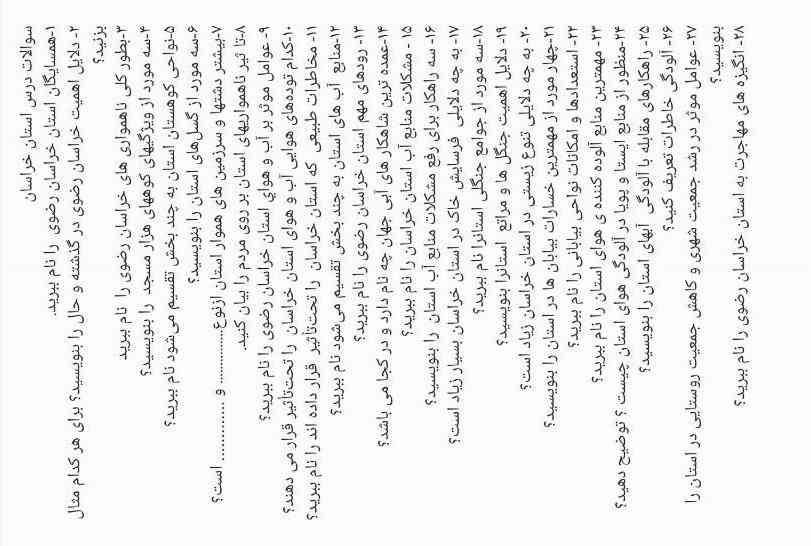 سوالات درس استان خراسان
۱-همسایگان استان خراسان رضوی را نام ببرید.
۲- دلایل اهمیت خراسان رضوی در گذشته و حال را بنویسید؟ برای هر کدام مثال
بزنید؟
۳-بطور کلی ناهمواری های خراسان رضوی را نام ببرید
۴-سه مورد از ویژگیهای کوههای هزار مسجد را بنویسید؟
۵-نواحی کوهستان استان به چند بخش تقسیم می‌شود نام ببرید؟
۶-سه مورد از گسل‌های استان را بنویسید؟
۷-بیشتر دشتها و سرزمین های هموار استان ازنوع............... و ............... است؟
۸-تا ثیر ناهمواریهای استان بر روی مردم را بیان کنید.
۹- عوامل موثر بر آب و هوای استان خراسان رضوی را نام ببرید؟
۱۰-کدام توده‌های هوایی آب و هوای استان خراسان را تحت‌تاثیر قرار می دهند؟
۱۱- مخاطرات طبیعی که استان خراسان را تحت‌تاثیر قرار داده اند را نام ببرید؟
۱۲-منابع آب های استان به چند بخش تقسیم می‌شود نام ببرید؟
۱۳- رودهای مهم استان خراسان رضوی را نام ببرید؟
۱۴-عمده ترین شاهکار های آبی جهان چه نام دارد و در کجا می باشد؟
۱۵ - مشکلات منابع آب استان خراسان را نام ببرید؟
۱۶- سه راهکار برای رفع مشکلات منابع آب استان را بنویسید؟
۱۷- به چه دلایلی فرسایش خاک در استان خراسان بسیار زیاد است؟
۱۸-سه مورد از جوامع جنگلی استانرا نام ببرید؟
۱۹- دلایل اهمیت جنگل ها و مراتع استانرا بنویسید؟
۲۰- به چه دلایلی تنوع زیستی در استان خراسان زیاد است؟
۲۱-چهار مورد از مهمترین خسارات بیابان ها در استان را بنویسید؟
۲۲- استعدادها و امکانات نواحی بیابانی را نام ببرید؟
۲۳- مهمترین منابع آلوده کننده ی هوای استان را نام ببرید؟
۲۴-منظور از منابع ایستا و پویا در آلودگی هوای استان چیست ؟ توضیح دهید؟
۲۵- راهکارهای مقابله با آلودگی آبهای استان را بنویسید؟
۲۶- آلودگی خاطرات تعریف کنید؟
۲۷- عوامل موثر در رشد جمعیت شهری و کاهش جمعیت روستایی در استان را
بنویسید؟
۲۸- انگیزه های مهاجرت به استان خراسان رضوی را نام ببرید؟